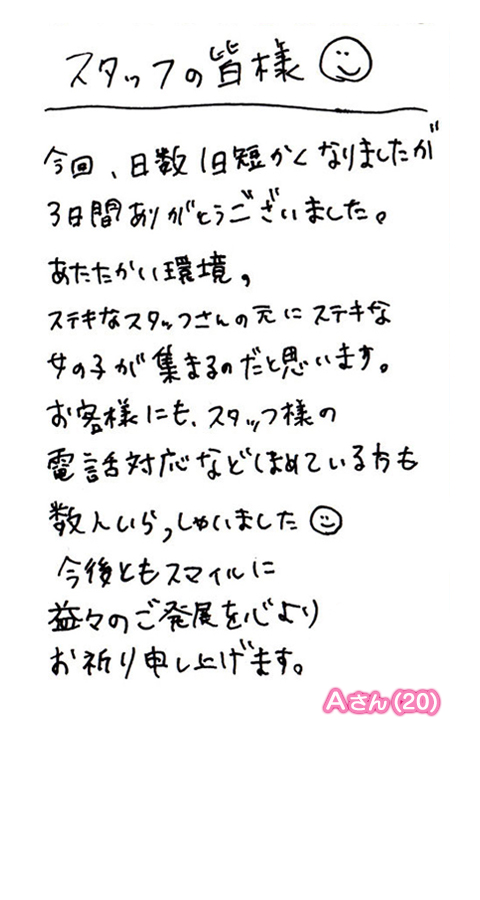 スタッフの皆様
今回、日数1日短かくなりましたが
3日間ありがとうございました。
あたたかい環境。
ステキなスタッフさんの元にステキな
女の子が集まるのだと思います。
お客様にも、スタッフ様の
電話対応などほめている方も
数人いらっしゃいました
今後ともスマイルに
益々のご発展を心より
お祈り申し上げます。
Aさん(20)